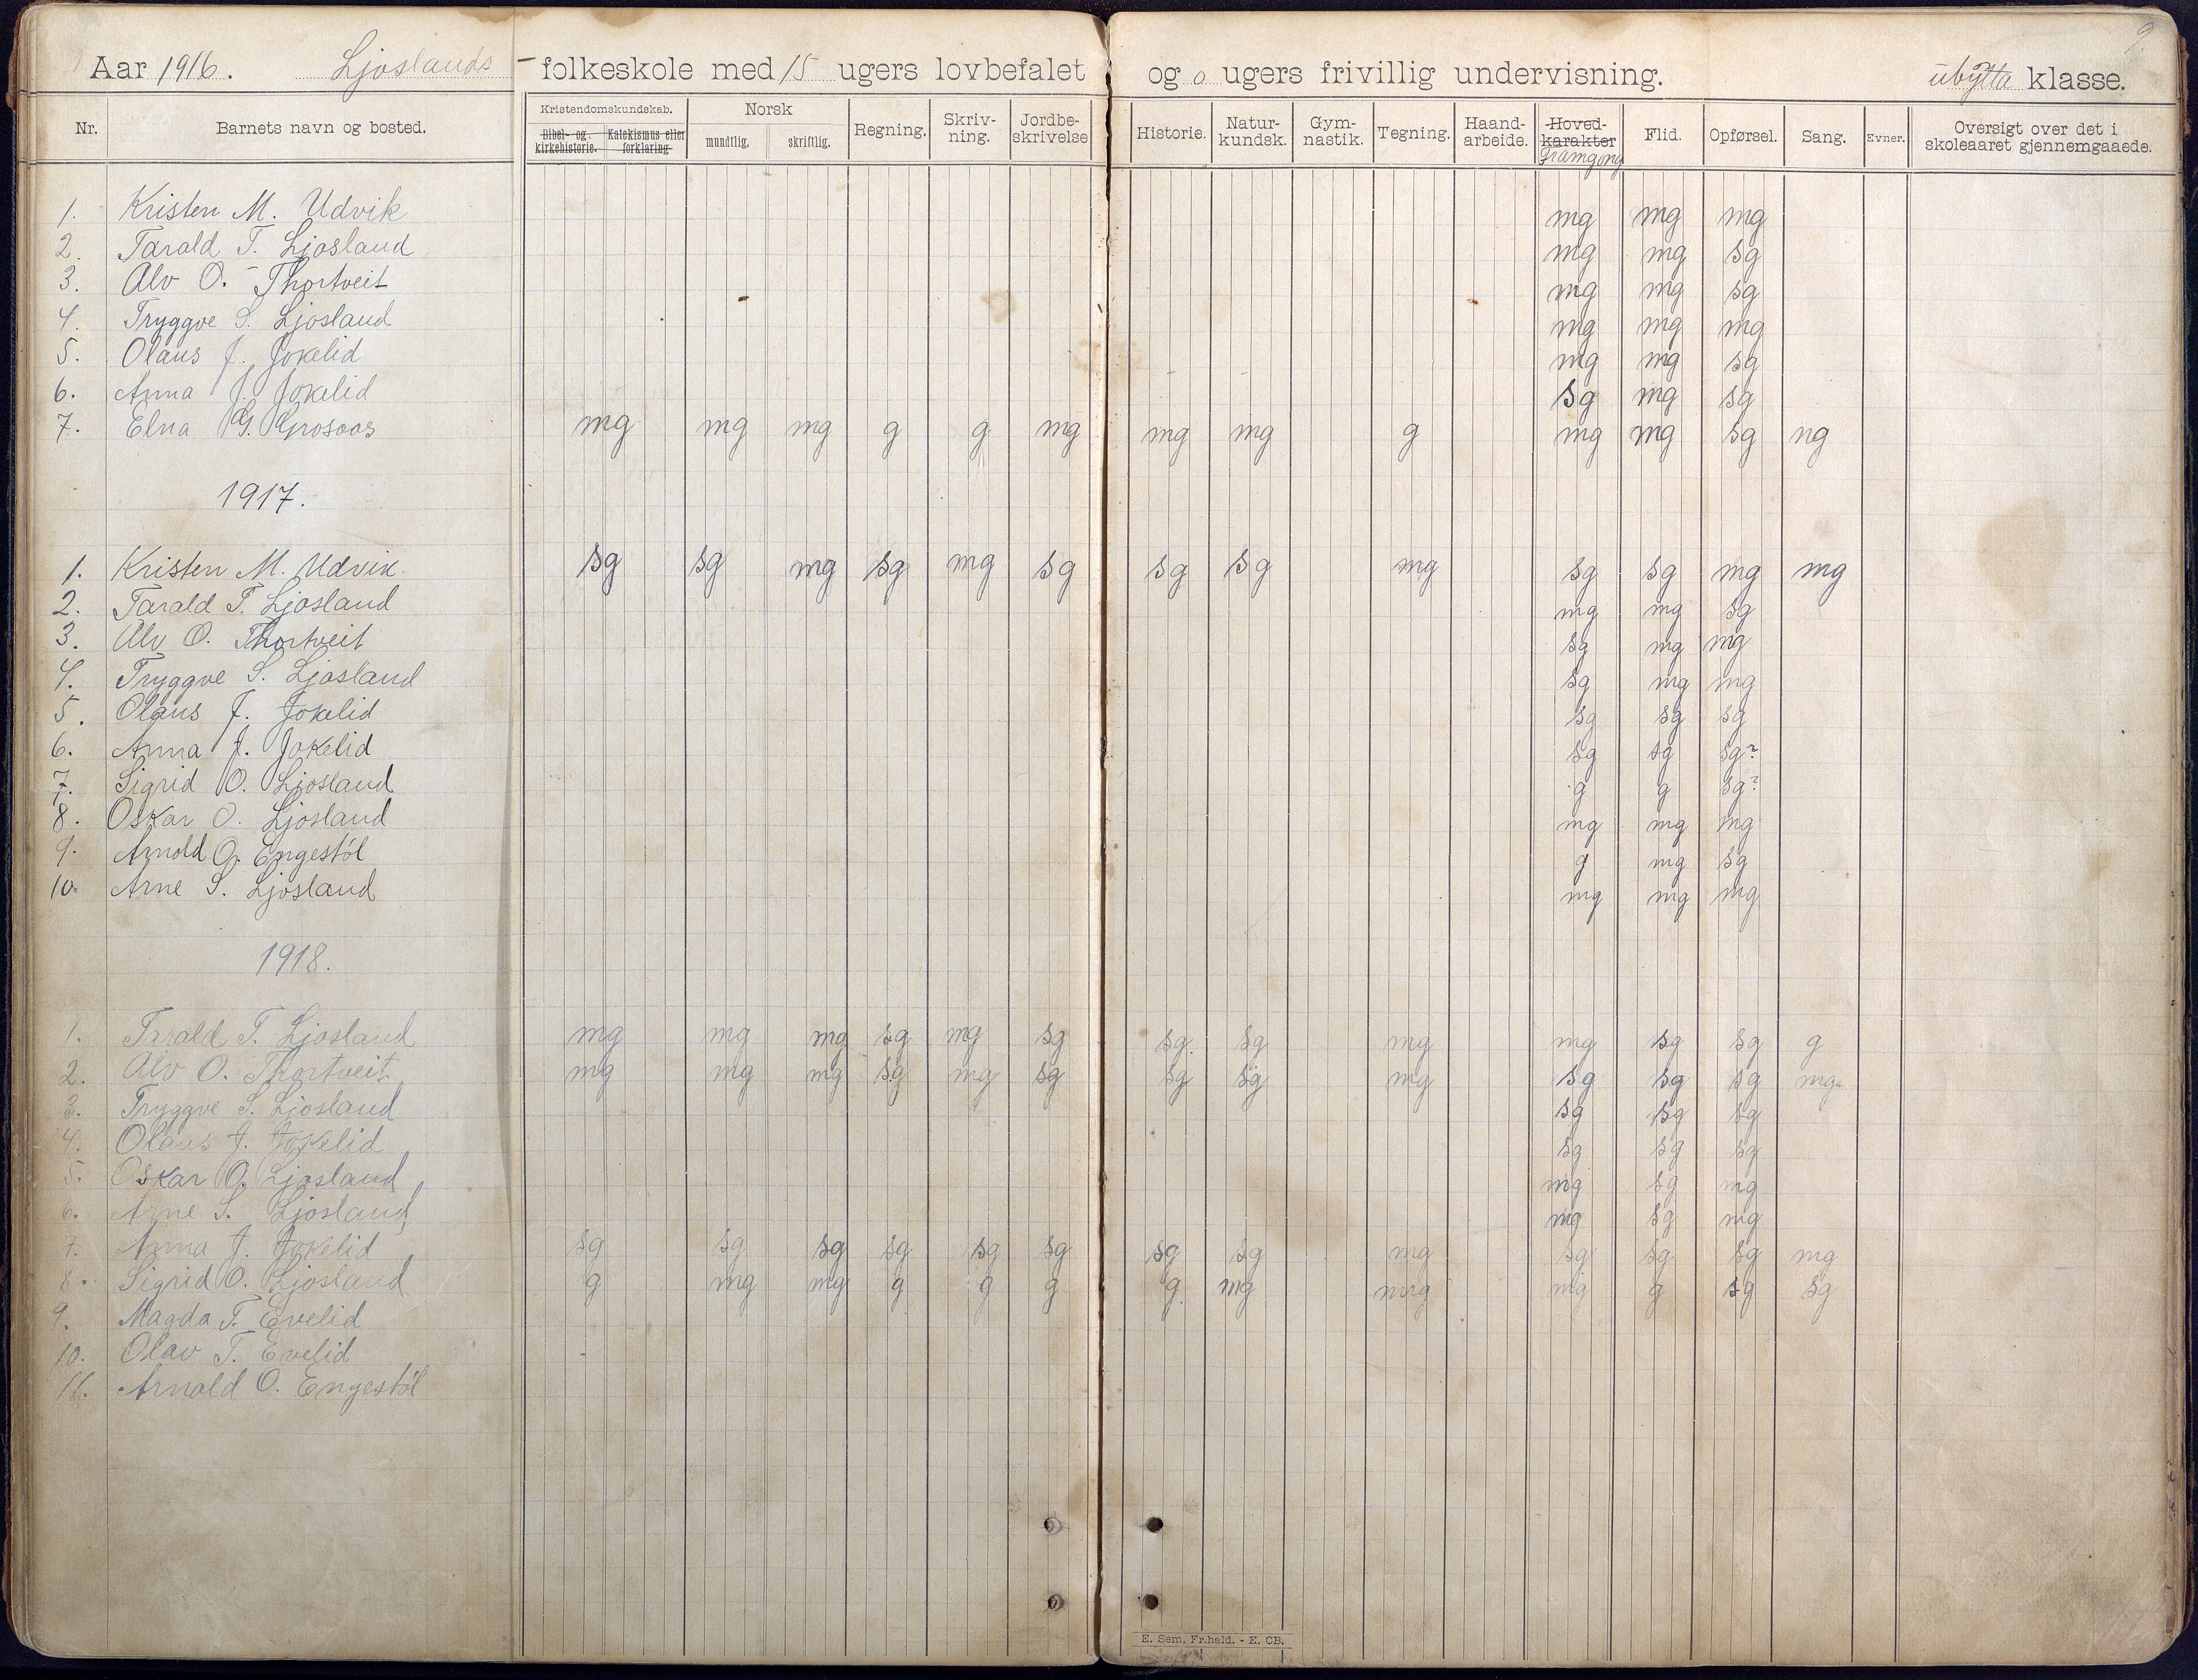 9
Aar 1916. Ljoslands -folkeskole med 15 ugers lovbefalet og 0 ugers frivillig undervisning. ubytta klasse.
Nr. Barnets navn og bosted. Kristendomskundskab. Bibel- og kirkehistorie. Katekismus eller forklaring Norsk mundtlig. skriftlig. Regning. Skriv-ning. Jordbe-skrivelse Historie. Natur-kundsk. Gym-nastik. Tegning. Haand-arbeide. Hoved-karakter Framgong Flid. Opførsel. Sang. Evner. Oversigt over det i skoleaaret gjennemgaaede.
1. Kristen M. Udvik mg mg mg
2. Tarald T. Ljosland mg mg sg
3. Alv O. Thortveit mg mg sg
4. Tryggve S. Ljosland mg mg mg
5. Olaus J. Jokelid mg mg sg
6. Anna J. Jokelid sg mg sg
7. Elna G. Grosoas mg mg mg g g mg mg mg g mg mg sg ng
1917.
1. Kristen M. Udvik. sg sg mg sg mg sg sg sg mg sg sg mg mg
2. Tarald T. Ljosland mg mg sg
3. Alv O. Thortveit sg mg mg
4. Tryggve S. Ljosland sg mg mg
5. Olaus J. Jokelid sg sg sg
6. Anna J. Jokelid sg sg sg?
7. Sigrid O. Ljosland g g sg?
8. Oskar O. Ljosland mg mg mg
9. Arnold O. Engestøl g mg sg
10. Arne S. Ljosland mg mg mg
1918.
1. Tarald T. Ljosland mg mg mg sg mg sg sg. sg mg mg sg sg g
2. Alv O. Thortveit mg mg mg sg mg sg sg sg mg sg sg sg mg
3. Tryggve S. Ljosland sg sg sg
4. Olaus J. Jokelid sg sg sg
5. Oskar O. Ljosland mg sg mg
6. Arne S. Ljosland mg sg mg
7. Anna J. Jokelid sg sg sg sg sg sg sg sg mg sg sg sg mg
8. Sigrid O. Ljosland g mg mg g g g g mg mg mg g sg sg
9. Magda T. Evelid
10. Olav T. Evelid
11. Arnold O. Engestøl
E. Sem, Fr.hald. - E. CB.